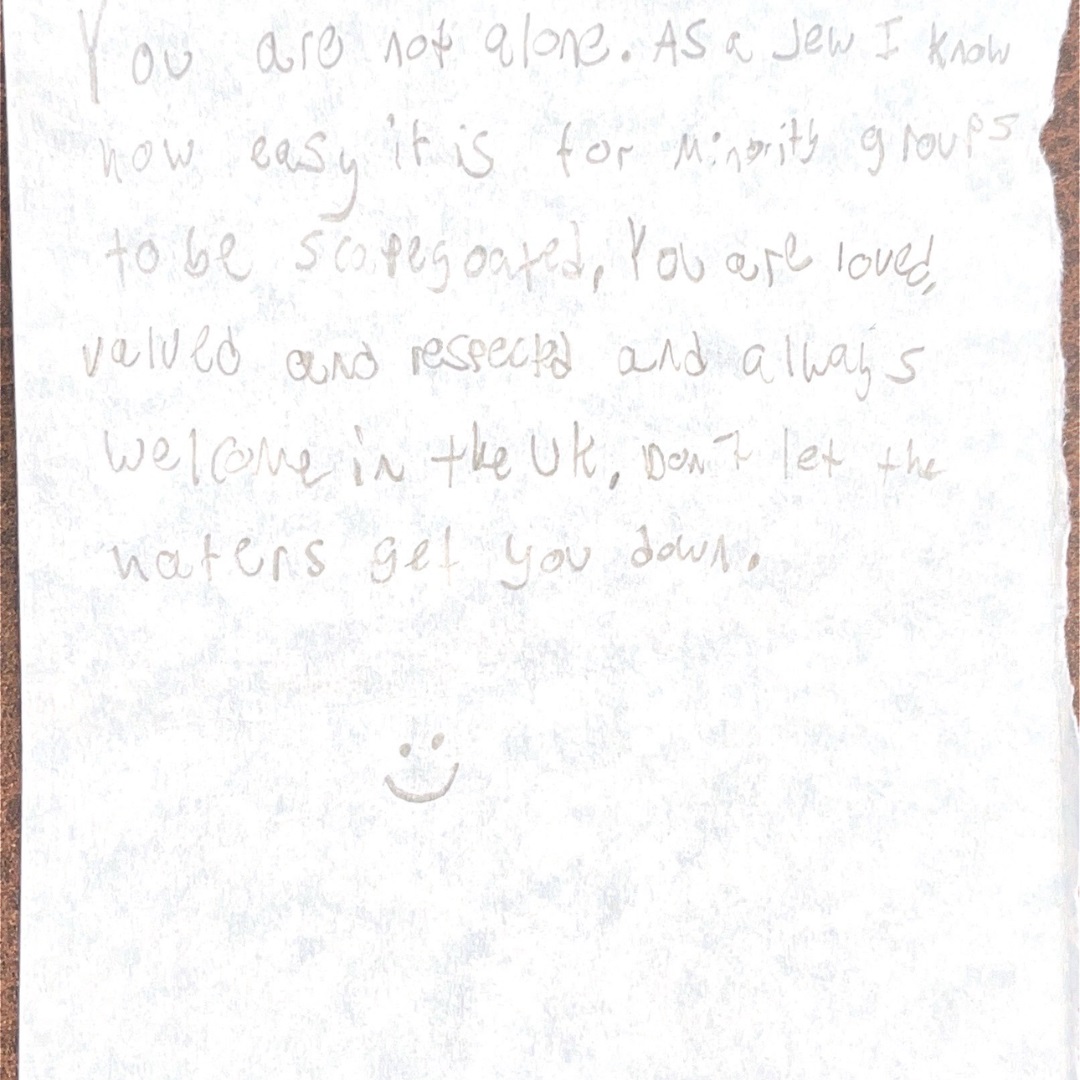 You are not alone. As a Jew I know
how easy it is for minority groups
to be scapegoated, You are loved,
valued and respected and always
welcome in the UK. Don't let the
haters get you down.